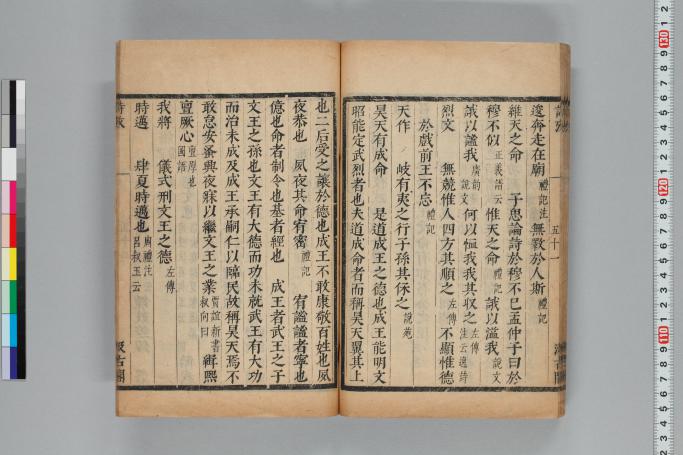 詩攷 五十一 汲古閣
逡奔走在廟 禮記注 無斁於人斯 禮記
維天之命 子思論詩於穆不已孟仲子曰於
穆不似 正義譜云 惟天之命 禮記 誐以溢我 說文
誐以謐我 廣韻 說文 何以恤我我其収之 左傳 注云逸詩
烈文 無競惟人四方其順之 左傳 不顯惟德
於戲前王不忘 禮記
天作 岐有夷之行子孫其保之 說苑
昊天有成命 是道成王之德也成王能明文
昭能定武烈者也夫道成命者而稱昊天翼其上
也二后受之讓於德也成王不敢康敬百姓也夙
夜恭也 夙夜其命宥密 禮記 宥謐謐者寧也
億也命者制令也基者經也 成王者武王之子
文王之孫也文王有大德而功未就武王有大功
而治未成及成王承嗣仁以臨民故稱昊天焉不
敢怠安蚤興夜寐以繼文王之業 賈誼新書 叔向曰 緝熙
亶厥心 亶厚也 國語
我將 儀式刑文王之德 左傳
時邁 肆夏時邁也 周禮注 呂叔玉云
詩攷 汲古閣
8 9 130 1 2
8 9 120 1 2 3 4 5 6 7
2 3 4 5 6 7 8 9 110 1 2 3 4 5 6 7